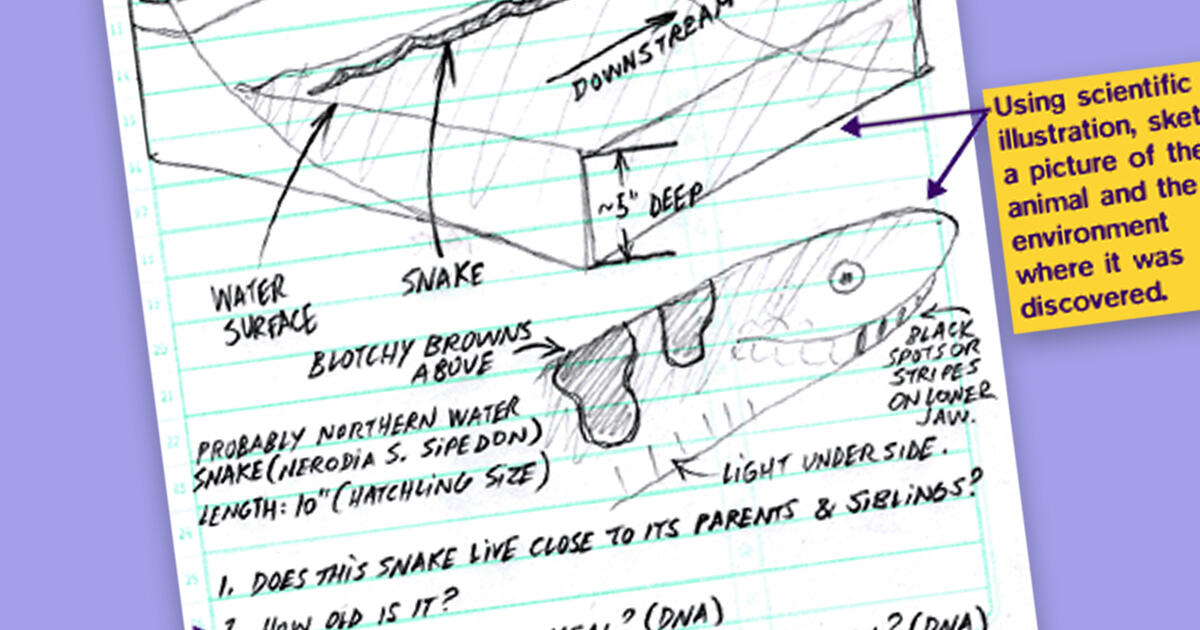 DOWNSTREAM
~5" DEEP
WATER
SURFACE
SNAKE
BLOTCHY BROWNS
ABOVE
BLACK
SPOTS OR
STRIPES
ON LOWER
JAW.
PROBABLY NORTHERN WATER
SNAKE (NERODIA S. SIPEDON)
LENGTH: 10" (HATCHLING SIZE)
LIGHT UNDERSIDE.
1. DOES THIS SNAKE LIVE CLOSE TO ITS PARENTS & SIBLINGS?
HOW OLD IS IT?
? (DNA)
? (DNA)
Using scientific
illustration, sket
a picture of the
animal and the
environment
where it was
discovered.